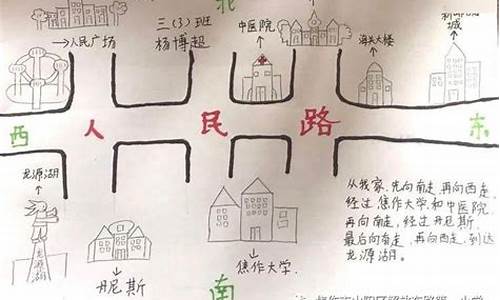 北
三(3)班
杨博超
→人民广场
中医院
海关大楼
城
西 人 民 路 东
龙源湖
龙源湖
丹尼斯
焦作大学
南
从我家,先向南走,再向西走,
经过焦作大学和中医院,
再向南走,经过丹尼斯,
最后向南走,再向西走,到达
龙源湖。